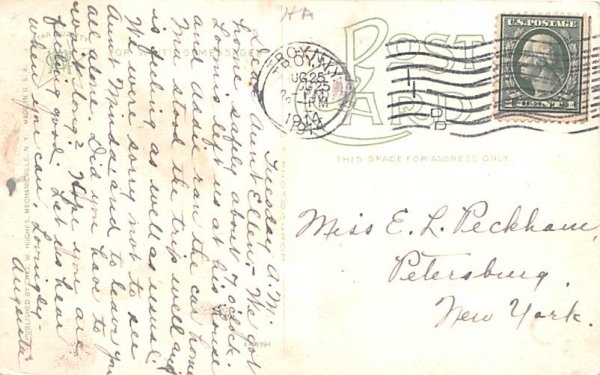 POST CARD
FOR WRITING MESSAGES
THIS SPACE FOR ADDRESS ONLY.
TROY, N.Y.
AUG 25
1 PM
1914
U.S. POSTAGE
Tuesday A.M.
Dear Aunt Ellen;- We got
home safely about 7 o'clock.
Loomis left us at his house
and Uncle ran the car home
Mu stood the trip well and
is feeling as well as usual.
We were sorry not to see
Aunt Minda and to leave you
all alone. Did you have to
wait long? Hope you are
feeling good. Let us hear
when you can, Lovingly-
Augusta
Miss E. L. Peckham,
Petersburg,
New York.
HUGHES, MECHANICVILLE, N.Y. MADE IN U.S.A.